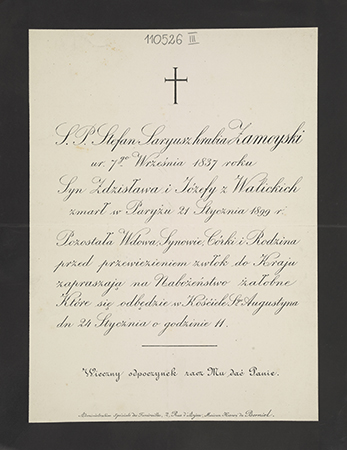 110526 III
Ś. P. Stefan Saryusz hrabia Zamoyski
ur. 7go Września 1837 roku
Syn Zdzisława i Józefy z Walickich
zmarł w Paryżu 21 Stycznia 1899 r.
Pozostała Wdowa, Synowie, Córki i Rodzina
przed przewiezieniem zwłok do Kraju
zapraszają na Nabożeństwo żałobne
Które się odbędzie w Kościele St. Augustyna
dn 24 Stycznia o godzinie 11.
Wieczny odpoczynek racz Mu dać Panie.
Administration Spéciale des Funérailles, 2, Rue d'Anjou Maison Henri de Borniol.